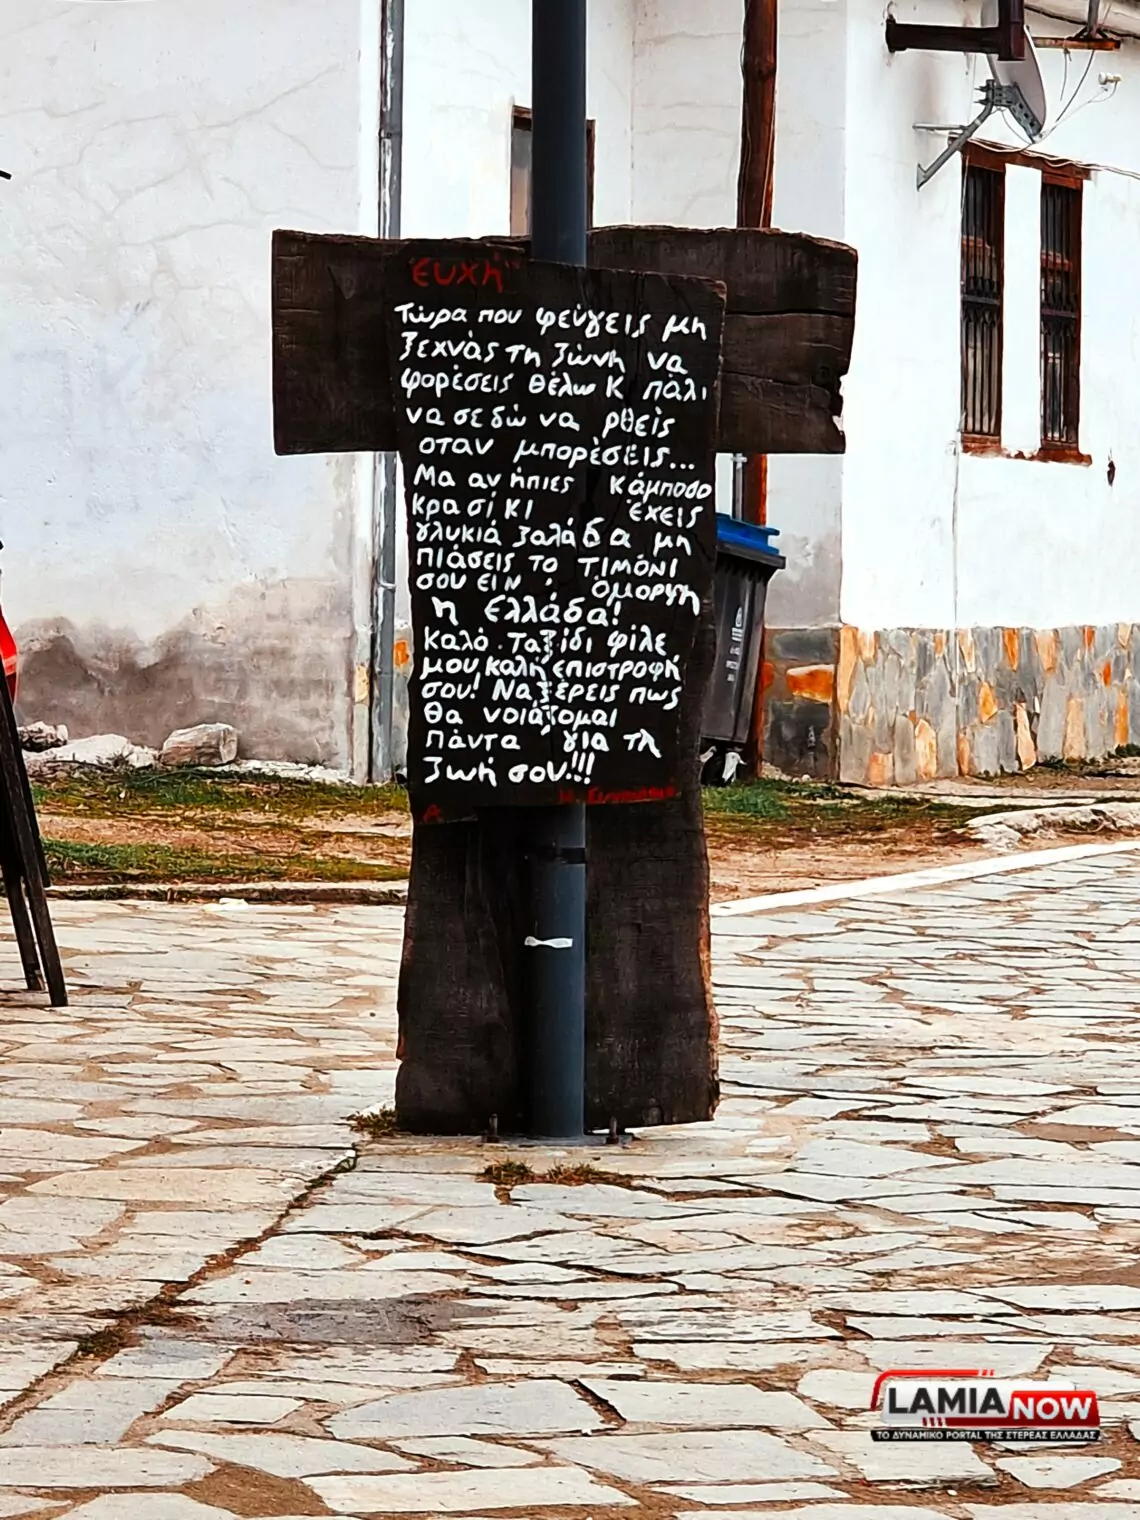 "Ευχή"
Τώρα που φεύγεις μη
ξεχνάς τη ζώνη να
φορέσεις θέλω κ πάλι
να σε δώ να ρθείς
οταν μπορέσεις...
Μα αν ήπιες κάμποσο
κρασί κι έχεις
γλυκιά ζαλάδα μη
πιάσεις το τιμόνι
σου ειν' όμορφη
η Ελλάδα!
καλό ταξίδι φίλε
μου καλή επιστροφή
σου! Να ξέρεις πως
θα νοιάζομαι
πάντα για τη
ζωή σου!!!
LAMIA NOW
ΤΟ ΔΥΝΑΜΙΚΟ PORTAL ΤΗΣ ΣΤΕΡΕΑΣ ΕΛΛΑΔΑΣ